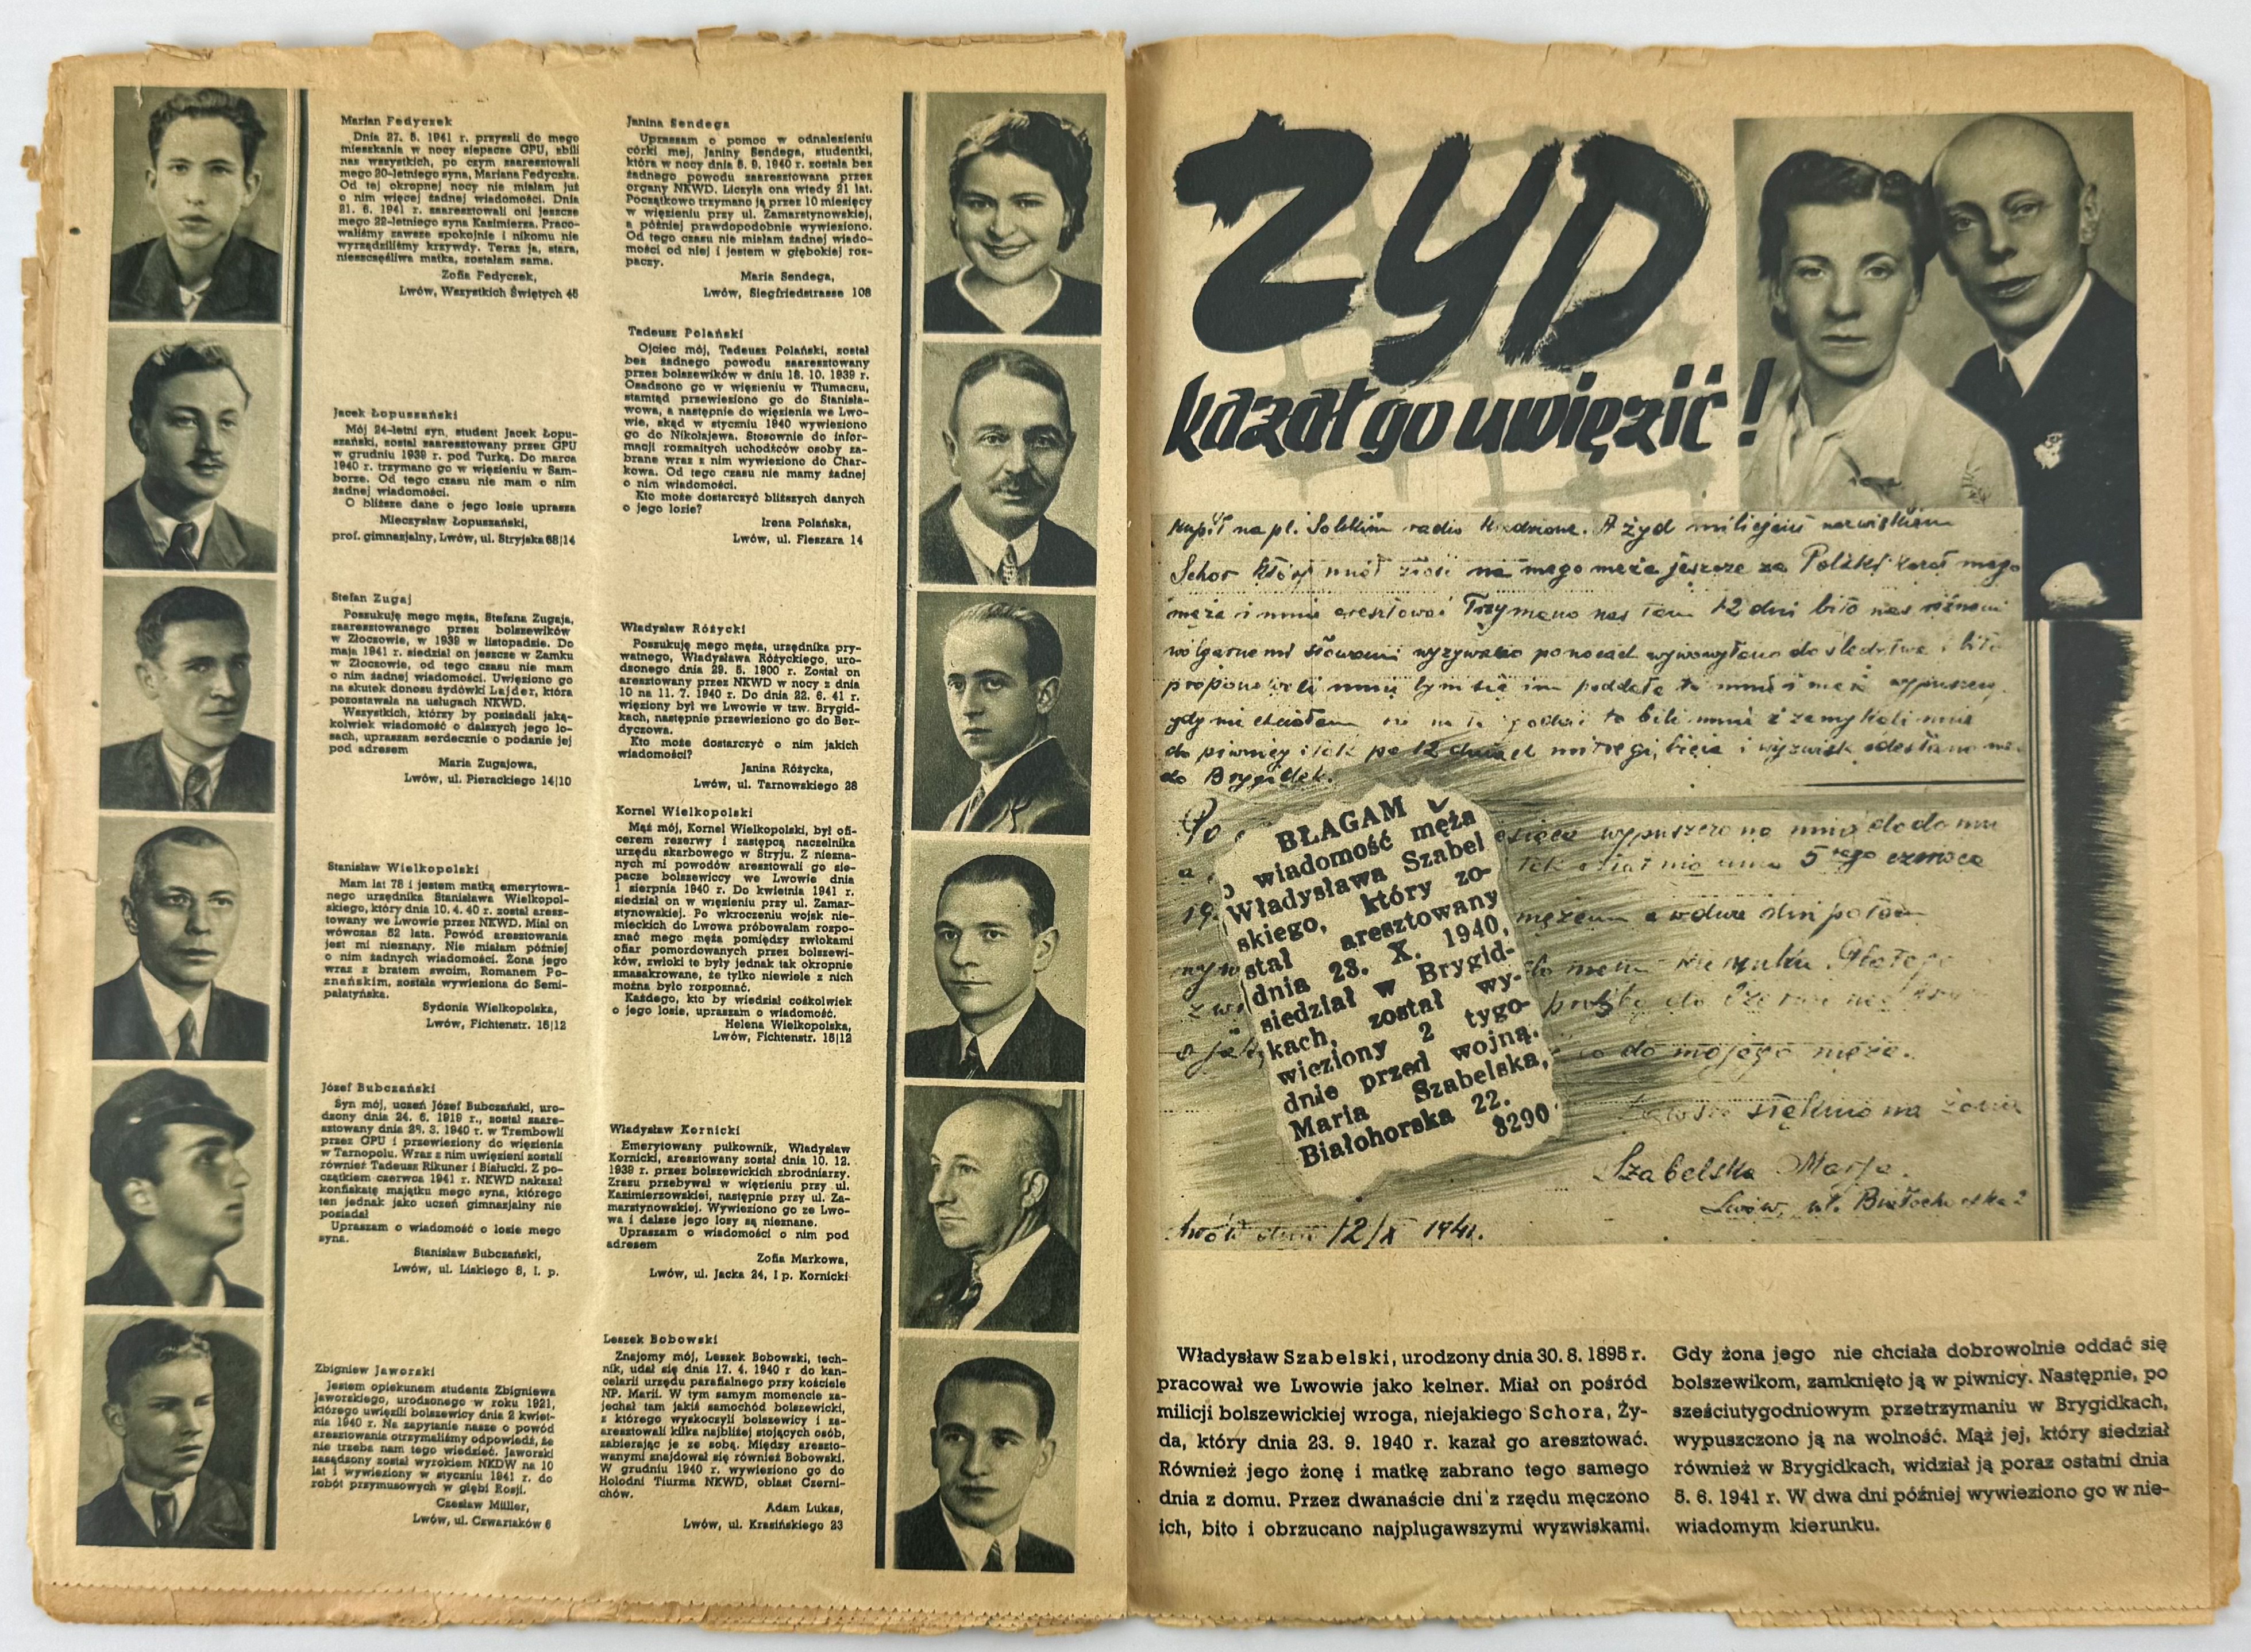 Marian Fedyczek
Dnia 27. 5. 1941 r. przyszli do mego
mieszkania w nocy siepacze GPU, zbili
nas wszystkich, po czym zaaresztowali
mego 20-letniego syna, Mariana Fedyczka.
Od tej okropnej nocy nie miałam już
o nim więcej żadnej wiadomości. Dnia
21. 6. 1941 r. zaaresztowali oni jeszcze
mego 22-letniego syna Kazimierza. Praco-
waliśmy zawsze spokojnie i nikomu nie
wyrządziliśmy krzywdy. Teraz ja, stara,
nieszczęśliwa matka, zostałam sama.
Zofia Fedyczek,
Lwów, Wszystkich Świętych 45
Jacek Łopuszański
Mój 24-letni syn, student Jacek Łopu-
szański, został zaaresztowany przez GPU
w grudniu 1939 r. pod Turką. Do marca
1940 r. trzymano go w więzieniu w Sam-
borze. Od tego czasu nie mam o nim
żadnej wiadomości.
O bliższe dane o jego losie uprasza
Mieczysław Łopuszański,
prof. gimnazjalny, Lwów, ul. Stryjska 68|14
Stefan Zugaj
Poszukuję mego męża, Stefana Zugaja,
zaaresztowanego przez bolszewików
w Złoczowie, w 1939 w listopadzie. Do
maja 1941 r. siedział on jeszcze w Zamku
w Złoczowie, od tego czasu nie mam
o nim żadnej wiadomości. Uwięziono go
na skutek donosu żydówki Lajder, która
pozostawała na usługach NKWD.
Wszystkich, którzy by posiadali jaką-
kolwiek wiadomość o dalszych jego lo-
sach, upraszam serdecznie o podanie jej
pod adresem
Maria Zugajowa,
Lwów, ul. Pierackiego 14|10
Stanisław Wielkopolski
Mam lat 78 i jestem matką emerytowa-
nego urzędnika Stanisława Wielkopol-
skiego, który dnia 10. 4. 40 r. został aresz-
towany we Lwowie przez NKWD. Miał on
wówczas 52 lata. Powód aresztowania
jest mi nieznany. Nie miałam później
o nim żadnych wiadomości. Żona jego
wraz z bratem swoim, Romanem Po-
znańskim, została wywieziona do Semi-
pałatyńska.
Sydonia Wielkopolska,
Lwów, Fichtenstr. 16|12
Józef Bubczański
Syn mój, uczeń Józef Bubczański, uro-
dzony dnia 24. 6. 1919 r., został zaare-
sztowany dnia 29. 3. 1940 r. w Trembowli
przez GPU i przewieziony do więzienia
w Tarnopolu. Wraz z nim uwięzieni zostali
również Tadeusz Rikuner i Białucki. Z po-
czątkiem czerwca 1941 r. NKWD nakazał
konfiskatę majątku mego syna, którego
ten jednak jako uczeń gimnazjalny nie
posiadał
Upraszam o wiadomość o losie mego
syna.
Stanisław Bubczański,
Lwów, ul. Liskiego 8, I. p.
Zbigniew Jaworski
Jestem opiekunem studenta Zbigniewa
Jaworskiego, urodzonego w roku 1921,
którego uwięzili bolszewicy dnia 2 kwiet-
nia 1940 r. Na zapytanie nasze o powód
aresztowania otrzymaliśmy odpowiedź, że
nie trzeba nam tego wiedzieć. Jaworski
zasądzony został wyrokiem NKDW na 10
lat i wywieziony w styczniu 1941 r. do
robót przymusowych w głębi Rosji.
Czesław Müller,
Lwów, ul. Czwartaków 6
Janina Sendega
Upraszam o pomoc w odnalezieniu
córki mej, Janiny Sendega, studentki,
która w nocy dnia 5. 9. 1940 r. została bez
żadnego powodu zaaresztowana przez
organy NKWD. Liczyła ona wtedy 21 lat.
Początkowo trzymano ją przez 10 miesięcy
w więzieniu przy ul. Zamarstynowskiej,
a później prawdopodobnie wywieziono.
Od tego czasu nie miałam żadnej wiado-
mości od niej i jestem w głębokiej roz-
paczy.
Maria Sendega,
Lwów, Siegfriedstrasse 108
Tadeusz Polański
Ojciec mój, Tadeusz Polański, został
bez żadnego powodu zaaresztowany
przez bolszewików w dniu 18. 10. 1939 r.
Osadzono go w więzieniu w Tłumaczu,
stamtąd przewieziono go do Stanisła-
wowa, a następnie do więzienia we Lwo-
wie, skąd w styczniu 1940 wywieziono
go do Nikołajewa. Stosownie do infor-
macji rozmaitych uchodźców osoby za-
brane wraz z nim wywieziono do Char-
kowa. Od tego czasu nie mamy żadnej
o nim wiadomości.
Kto może dostarczyć bliższych danych
o jego losie?
Irena Polańska,
Lwów, ul. Fleszara 14
Władysław Różycki
Poszukuję mego męża, urzędnika pry-
watnego, Władysława Różyckiego, uro-
dzonego dnia 29. 5. 1900 r. Został on
aresztowany przez NKWD w nocy z dnia
10 na 11. 7. 1940 r. Do dnia 22. 6. 41 r.
więziony był we Lwowie w tzw. Brygid-
kach, następnie przewieziono go do Ber-
dyczowa.
Kto może dostarczyć o nim jakich
wiadomości?
Janina Różycka,
Lwów, ul. Tarnowskiego 28
Kornel Wielkopolski
Mąż mój, Kornel Wielkopolski, był ofi-
cerem rezerwy i zastępcą naczelnika
urzędu skarbowego w Stryju. Z niezna-
nych mi powodów aresztowali go sie-
pacze bolszewiccy we Lwowie dnia
1 sierpnia 1940 r. Do kwietnia 1941 r.
siedział on w więzieniu przy ul. Zamar-
stynowskiej. Po wkroczeniu wojsk nie-
mieckich do Lwowa próbowałam rozpo-
znać mego męża pomiędzy zwłokami
ofiar pomordowanych przez bolszewi-
ków, zwłoki te były jednak tak okropnie
zmasakrowane, że tylko niewiele z nich
można było rozpoznać.
Każdego, kto by wiedział cośkolwiek
o jego losie, upraszam o wiadomość.
Helena Wielkopolska,
Lwów, Fichtenstr. 16|12
Władysław Kornicki
Emerytowany pułkownik, Władysław
Kornicki, aresztowany został dnia 10. 12.
1939 r. przez bolszewickich zbrodniarzy.
Zrazu przebywał w więzieniu przy ul.
Kazimierzowskiej, następnie przy ul. Za-
marstynowskiej. Wywieziono go ze Lwo-
wa i dalsze jego losy są nieznane.
Upraszam o wiadomości o nim pod
adresem
Zofia Markowa,
Lwów, ul. Jacka 24, I p. Kornicki
Leszek Bobowski
Znajomy mój, Leszek Bobowski, tech-
nik, udał się dnia 17. 4. 1940 r do kan-
celarii urzędu parafialnego przy kościele
NP. Marii. W tym samym momencie za-
jechał tam jakiś samochód bolszewicki,
z którego wyskoczyli bolszewicy i za-
aresztowali kilka najbliżej stojących osób,
zabierając je ze sobą. Między areszto-
wanymi znajdował się również Bobowski.
W grudniu 1940 r. wywieziono go do
Holodni Tiurma NKWD, oblast Czerni-
chów.
Adam Lukas,
Lwów, ul. Krasińskiego 23
ŻYD
kazał go uwięzić!
kupił na pl. Solskim radio kradzione. A żyd milicjant nazwiskiem
Schor który miał złość na mego męża jeszcze za Polski kazał mego
męża i mnie aresztować Trzymano nas tam 12 dni bito nas różnemi
wolgarnemi słowami wyzywano ponocach wywoływano do śledztwa i bito
proponowali mnie bym się im poddała to mnie i męża wypuszczą
gdy nie chciałam się na to godzić to bili mnie i zamykali mnie
do piwnicy i tak po 12 dniach mitręgi, bicia i wyzwisk odesłano
do Brygidek.
wypuszczono mnie do domu
5 tego czerwca
mężem a w dwa dni potem
kierunku
prośbę do
co do mojego męża.
Szabelska Marja.
Lwów, ul. Białochorska 2
Lwów dnia 12/X 1941.
BŁAGAM
o wiadomość męża
Władysława Szabel
skiego, który zo-
stał aresztowany
dnia 23. X. 1940,
siedział w Brygid-
kach, został wy-
wieziony 2 tygo-
dnie przed wojną.
Maria Szabelska,
Białohorska 22.
8290
Władysław Szabelski, urodzony dnia 30. 8. 1895 r.
pracował we Lwowie jako kelner. Miał on pośród
milicji bolszewickiej wroga, niejakiego Schora, Ży-
da, który dnia 23. 9. 1940 r. kazał go aresztować.
Również jego żonę i matkę zabrano tego samego
dnia z domu. Przez dwanaście dni z rzędu męczono
ich, bito i obrzucano najplugawszymi wyzwiskami.
Gdy żona jego nie chciała dobrowolnie oddać się
bolszewikom, zamknięto ją w piwnicy. Następnie, po
sześciutygodniowym przetrzymaniu w Brygidkach,
wypuszczono ją na wolność. Mąż jej, który siedział
również w Brygidkach, widział ją poraz ostatni dnia
5. 6. 1941 r. W dwa dni później wywieziono go w nie-
wiadomym kierunku.